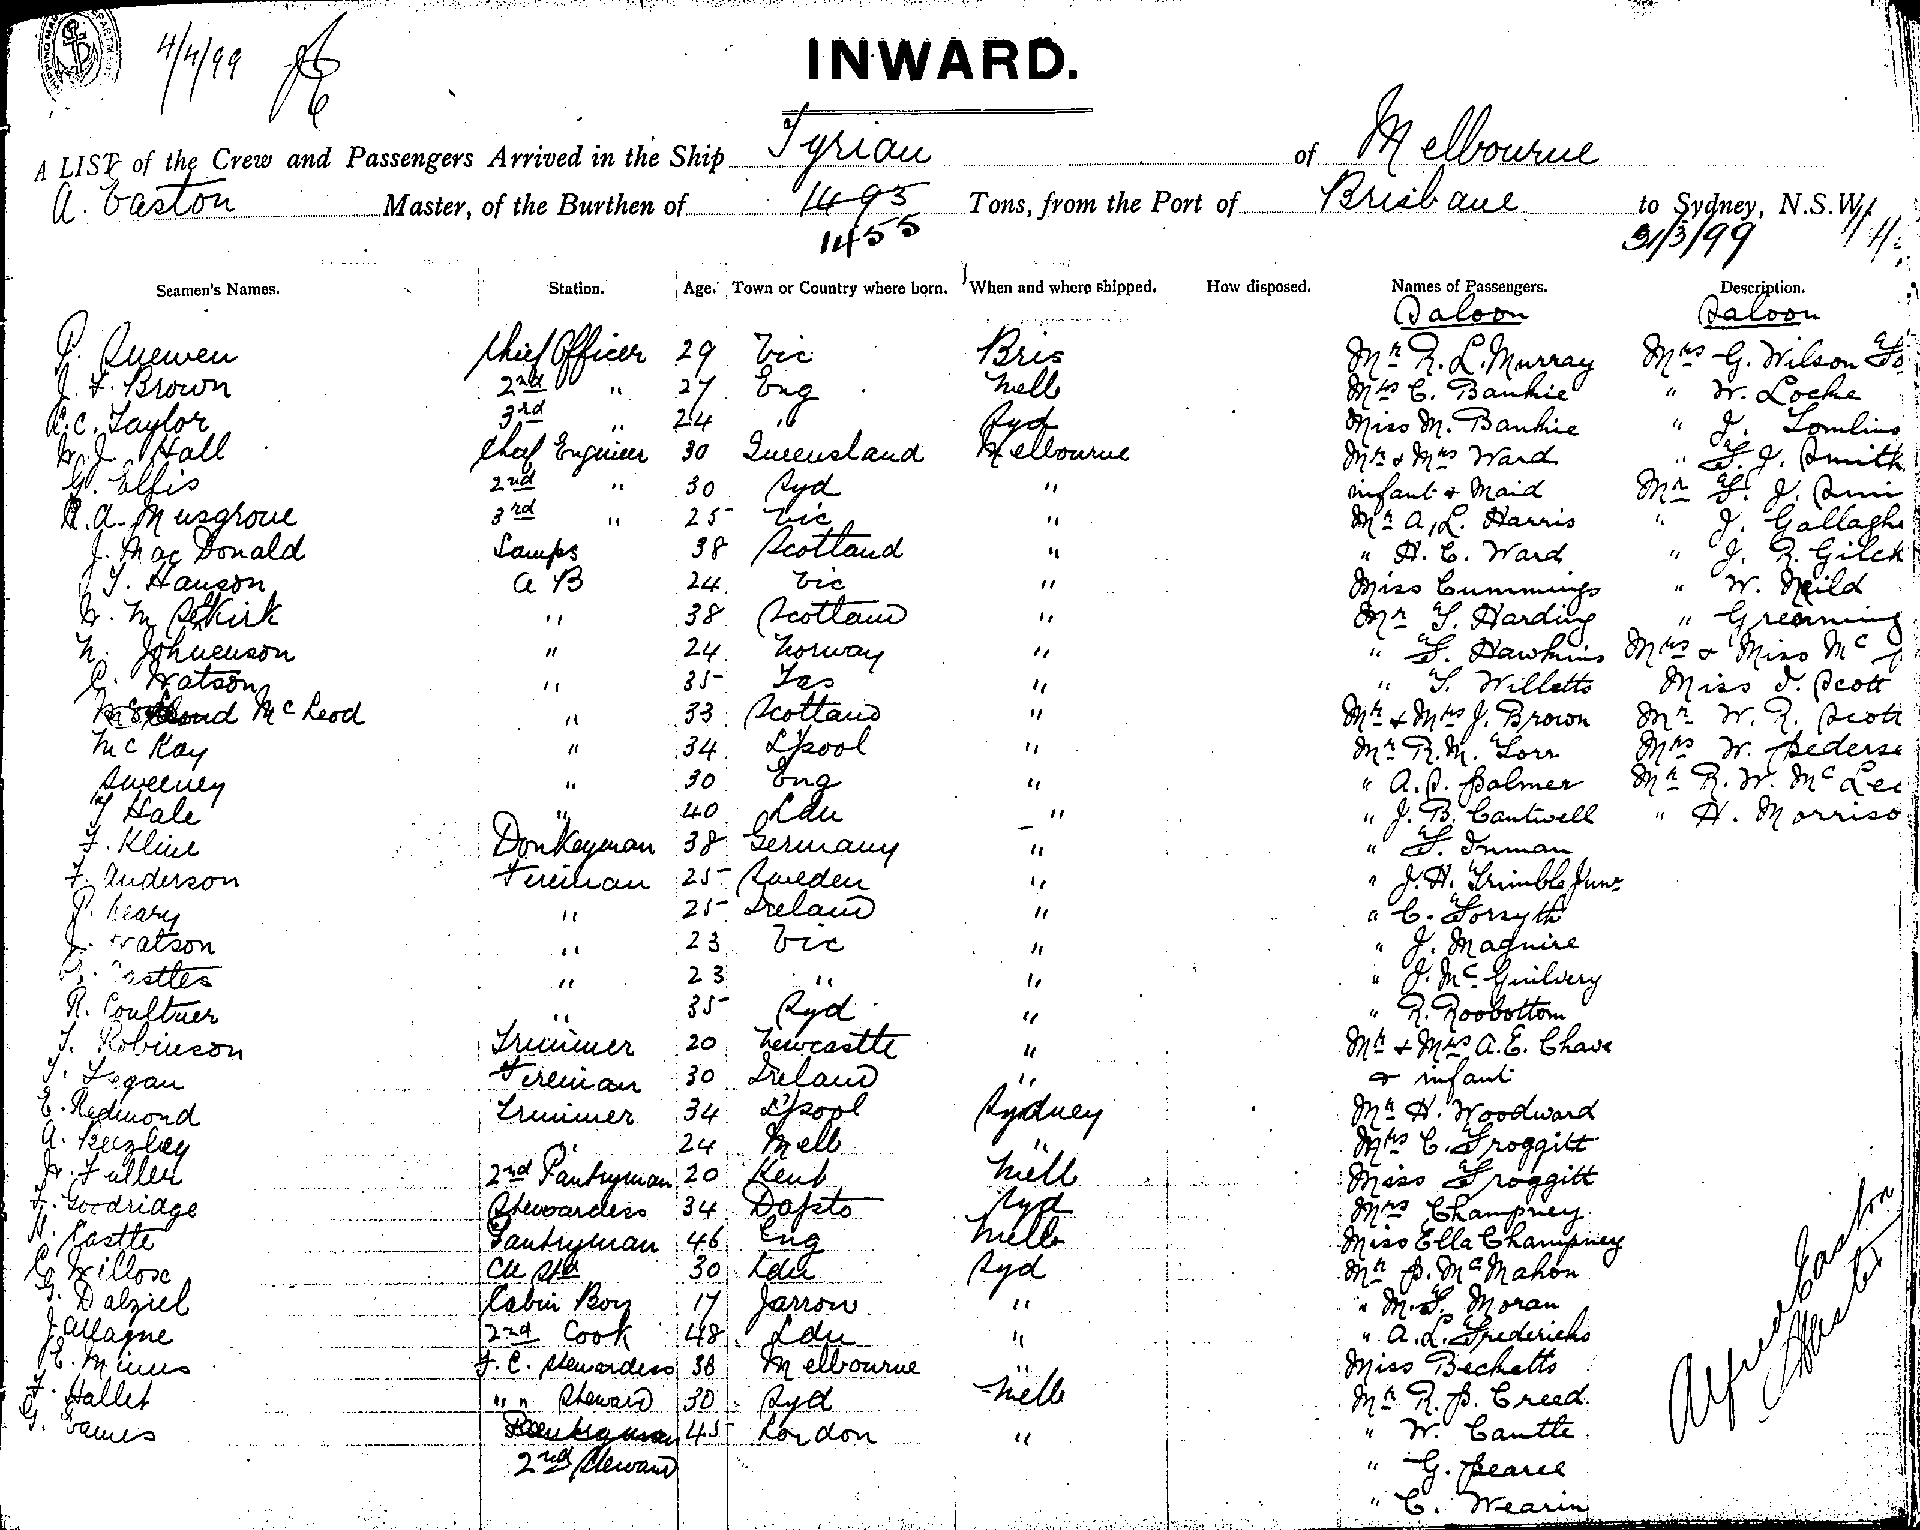 4/4/99
INWARD.
A LIST of the Crew and Passengers Arrived in the Ship Tyrian of Melbourne
A. Easton Master, of the Burthen of 1493 Tons, from the Port of Brisbane to Sydney, N.S.W.
1455 31/3/99
Seamen's Names. Station. Age. Town or Country where born. When and where shipped. How disposed. Names of Passengers. Description.
Saloon Saloon
Chief Officer 29 Vic Bris Mr R. L. Murray Mrs G. Wilson
J. F. Brown 2nd " 27 Eng Melb Mrs C. Bankie " W. Locke
R. C. Taylor 3rd " 24 " Syd Miss M. Bankie " J. Tomlins
W. J. Hall Chief Engineer 30 Queensland Melbourne Mr & Mrs Ward " F. J. Smith
G. Ellis 2nd " 30 Syd " infant & Maid Mr F. J. Smi
R. A. Musgrove 3rd " 25 Vic " Mr A. L. Harris " J. Gallagh
J. Mac Donald Lamps 38 Scotland " " H. C. Ward " J. R. Gilch
T. Hanson A B 24 Vic " Miss Cummings " W. Neild
W. M Selkirk " 38 Scotland " Mr T. Harding " Greenning
N. Johnenson " 24 Norway " " F. Hawkins Mrs & Miss Mc
C. Watson " 35 Tas " " T. Willetts Miss J. Scott
Mc Leod " 33 Scotland " Mr & Mrs J. Brown Mr W. R. Scott
McKay " 34 L'pool " Mr R. M. Torr Mrs W. Pederse
Sweeney " 30 Eng " A. S. Palmer Mr R. W. McLeo
T Hale " 40 Ldn " " J. B. Cantwell " H. Morriso
F. Kline Donkeyman 38 Germany " " F. Inman
F. Anderson Fireman 25 Sweden " " J. H. Trimble Junr
P. Leary " 25 Ireland " " C. Forsyth
J. Watson " 23 Vic " " J. Maguire
" 23 " " " J. McGuilvery
R. Coultner " 35 Syd " " R. Roobottom
T. Robinson Trimmer 20 Newcastle " Mr & Mrs A. E. Chave
Fireman 30 Ireland " & infant
E. Redmond Trimmer 34 L'pool Sydney Mr H. Woodward
A. " 24 Melb " Mrs C. Froggitt
H. Fuller 2nd Pantryman 20 Kent Melb Miss Froggitt
F. Goodridge Stewardess 34 Dapto Syd Mrs Champney
H. Castle Pantryman 46 Eng Melb Miss Ella Champney
30 Ldn Syd Mr P. McMahon
G. Dalziel Cabin Boy 17 Jarrow " " M. F. Moran
2nd Cook 48 Ldn " " A. L. Fredericks
E. F. C. Stewardess 38 Melbourne " Miss Becketts
F. Hallet " " Steward 30 Syd Melb Mr R. P. Creed
G. Eames 45 London " " W. Cantle
2nd Steward " G. Pearce
" C. Wearin
Alfred Easton
Master